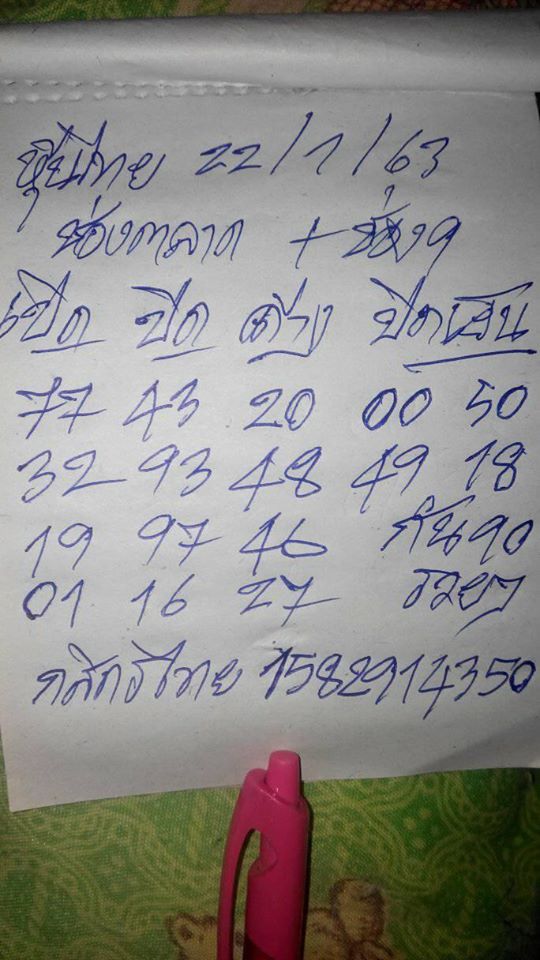 หุ้นไทย 22/1/63
ช่องตลาด + ช่อง9
เปิด ปิด ต่าง ปิดเย็น
77 43 20 00 50
32 93 48 49 18
19 97 46 กัน90
01 16 27 รวยๆ
กสิกรไทย 1582914350